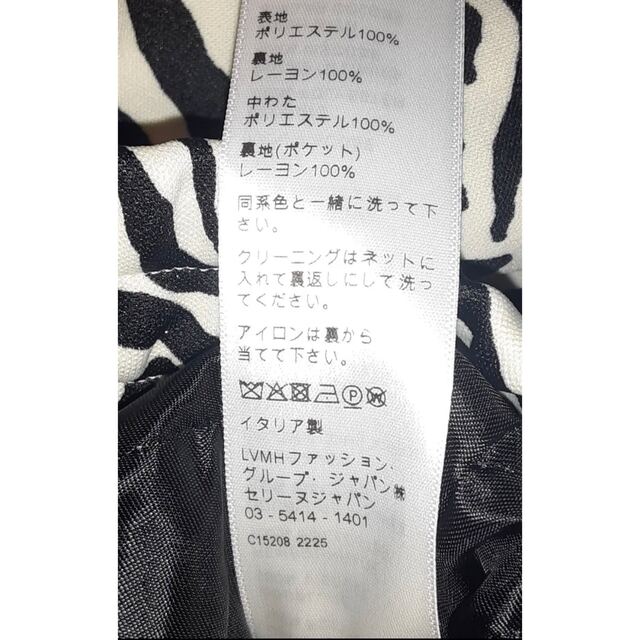 表地
ポリエステル100%
裏地
レーヨン100%
中わた
ポリエステル100%
裏地(ポケット)
レーヨン100%
同系色と一緒に洗って下
さい。
クリーニングはネットに
入れて裏返しにして洗っ
てください。
アイロンは裏から
当てて下さい。
イタリア製
LVMHファッション.
グループ・ジャパン㈱
セリーヌジャパン
03-5414-1401
C15208 2225